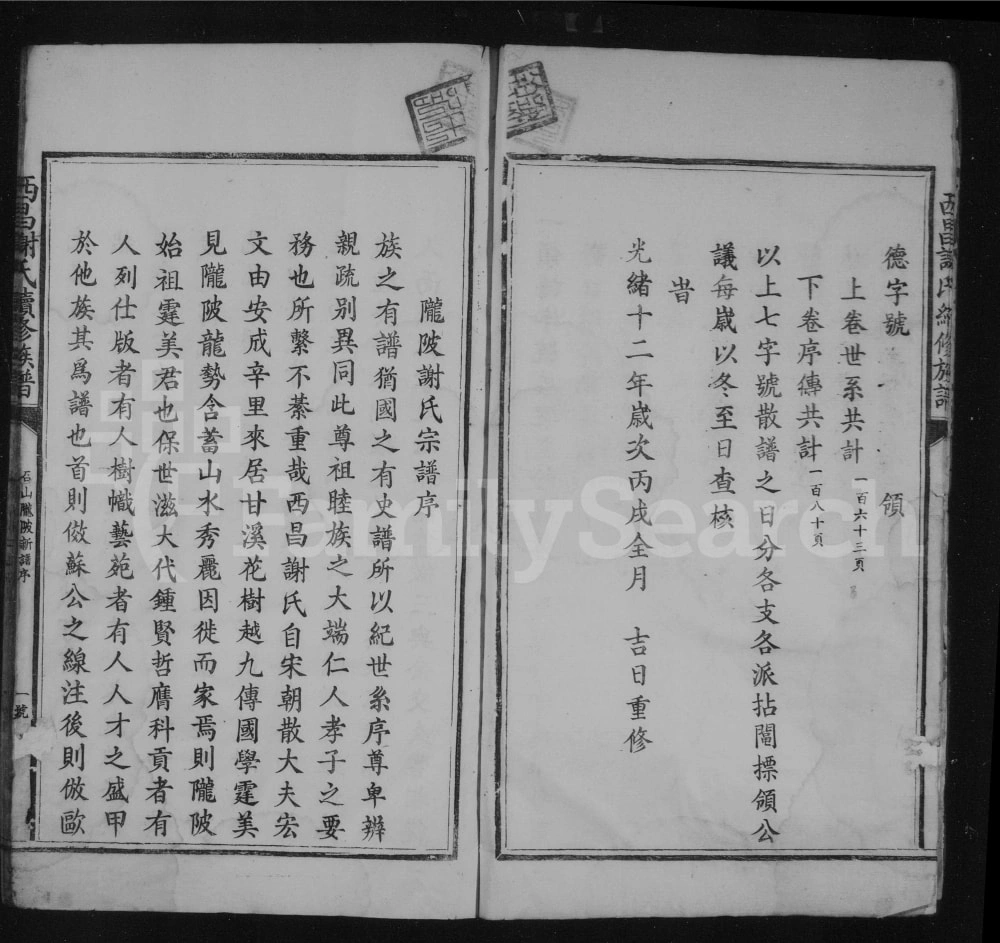 德字號 領
上卷世系共計一百六十三頁
下卷序傳共計一百八十頁
以上七字號散譜之日分各支各派拈鬮摽領公
議每嵗以冬至日查核
旹
光緒十二年嵗次丙戌全月 吉日重修
隴陂謝氏宗譜序
族之有譜猶國之有史譜所以紀世系序尊卑辨
親疏别異同此尊祖睦族之大端仁人孝子之要
務也所繫不綦重哉西昌謝氏自宋朝散大夫宏
文由安成辛里來居甘溪花樹越九傳國學霆美
見隴陂龍勢含蓄山水秀麗因徙而家焉則隴陂
始祖霆美君也保世滋大代鍾賢哲膺科貢者有
人列仕版者有人樹幟藝苑者有人人才之盛甲
於他族其爲譜也首則倣蘇公之線注後則倣歐
西昌謝氏續修族譜
石山隴陂新譜序
一號
FamilySearch